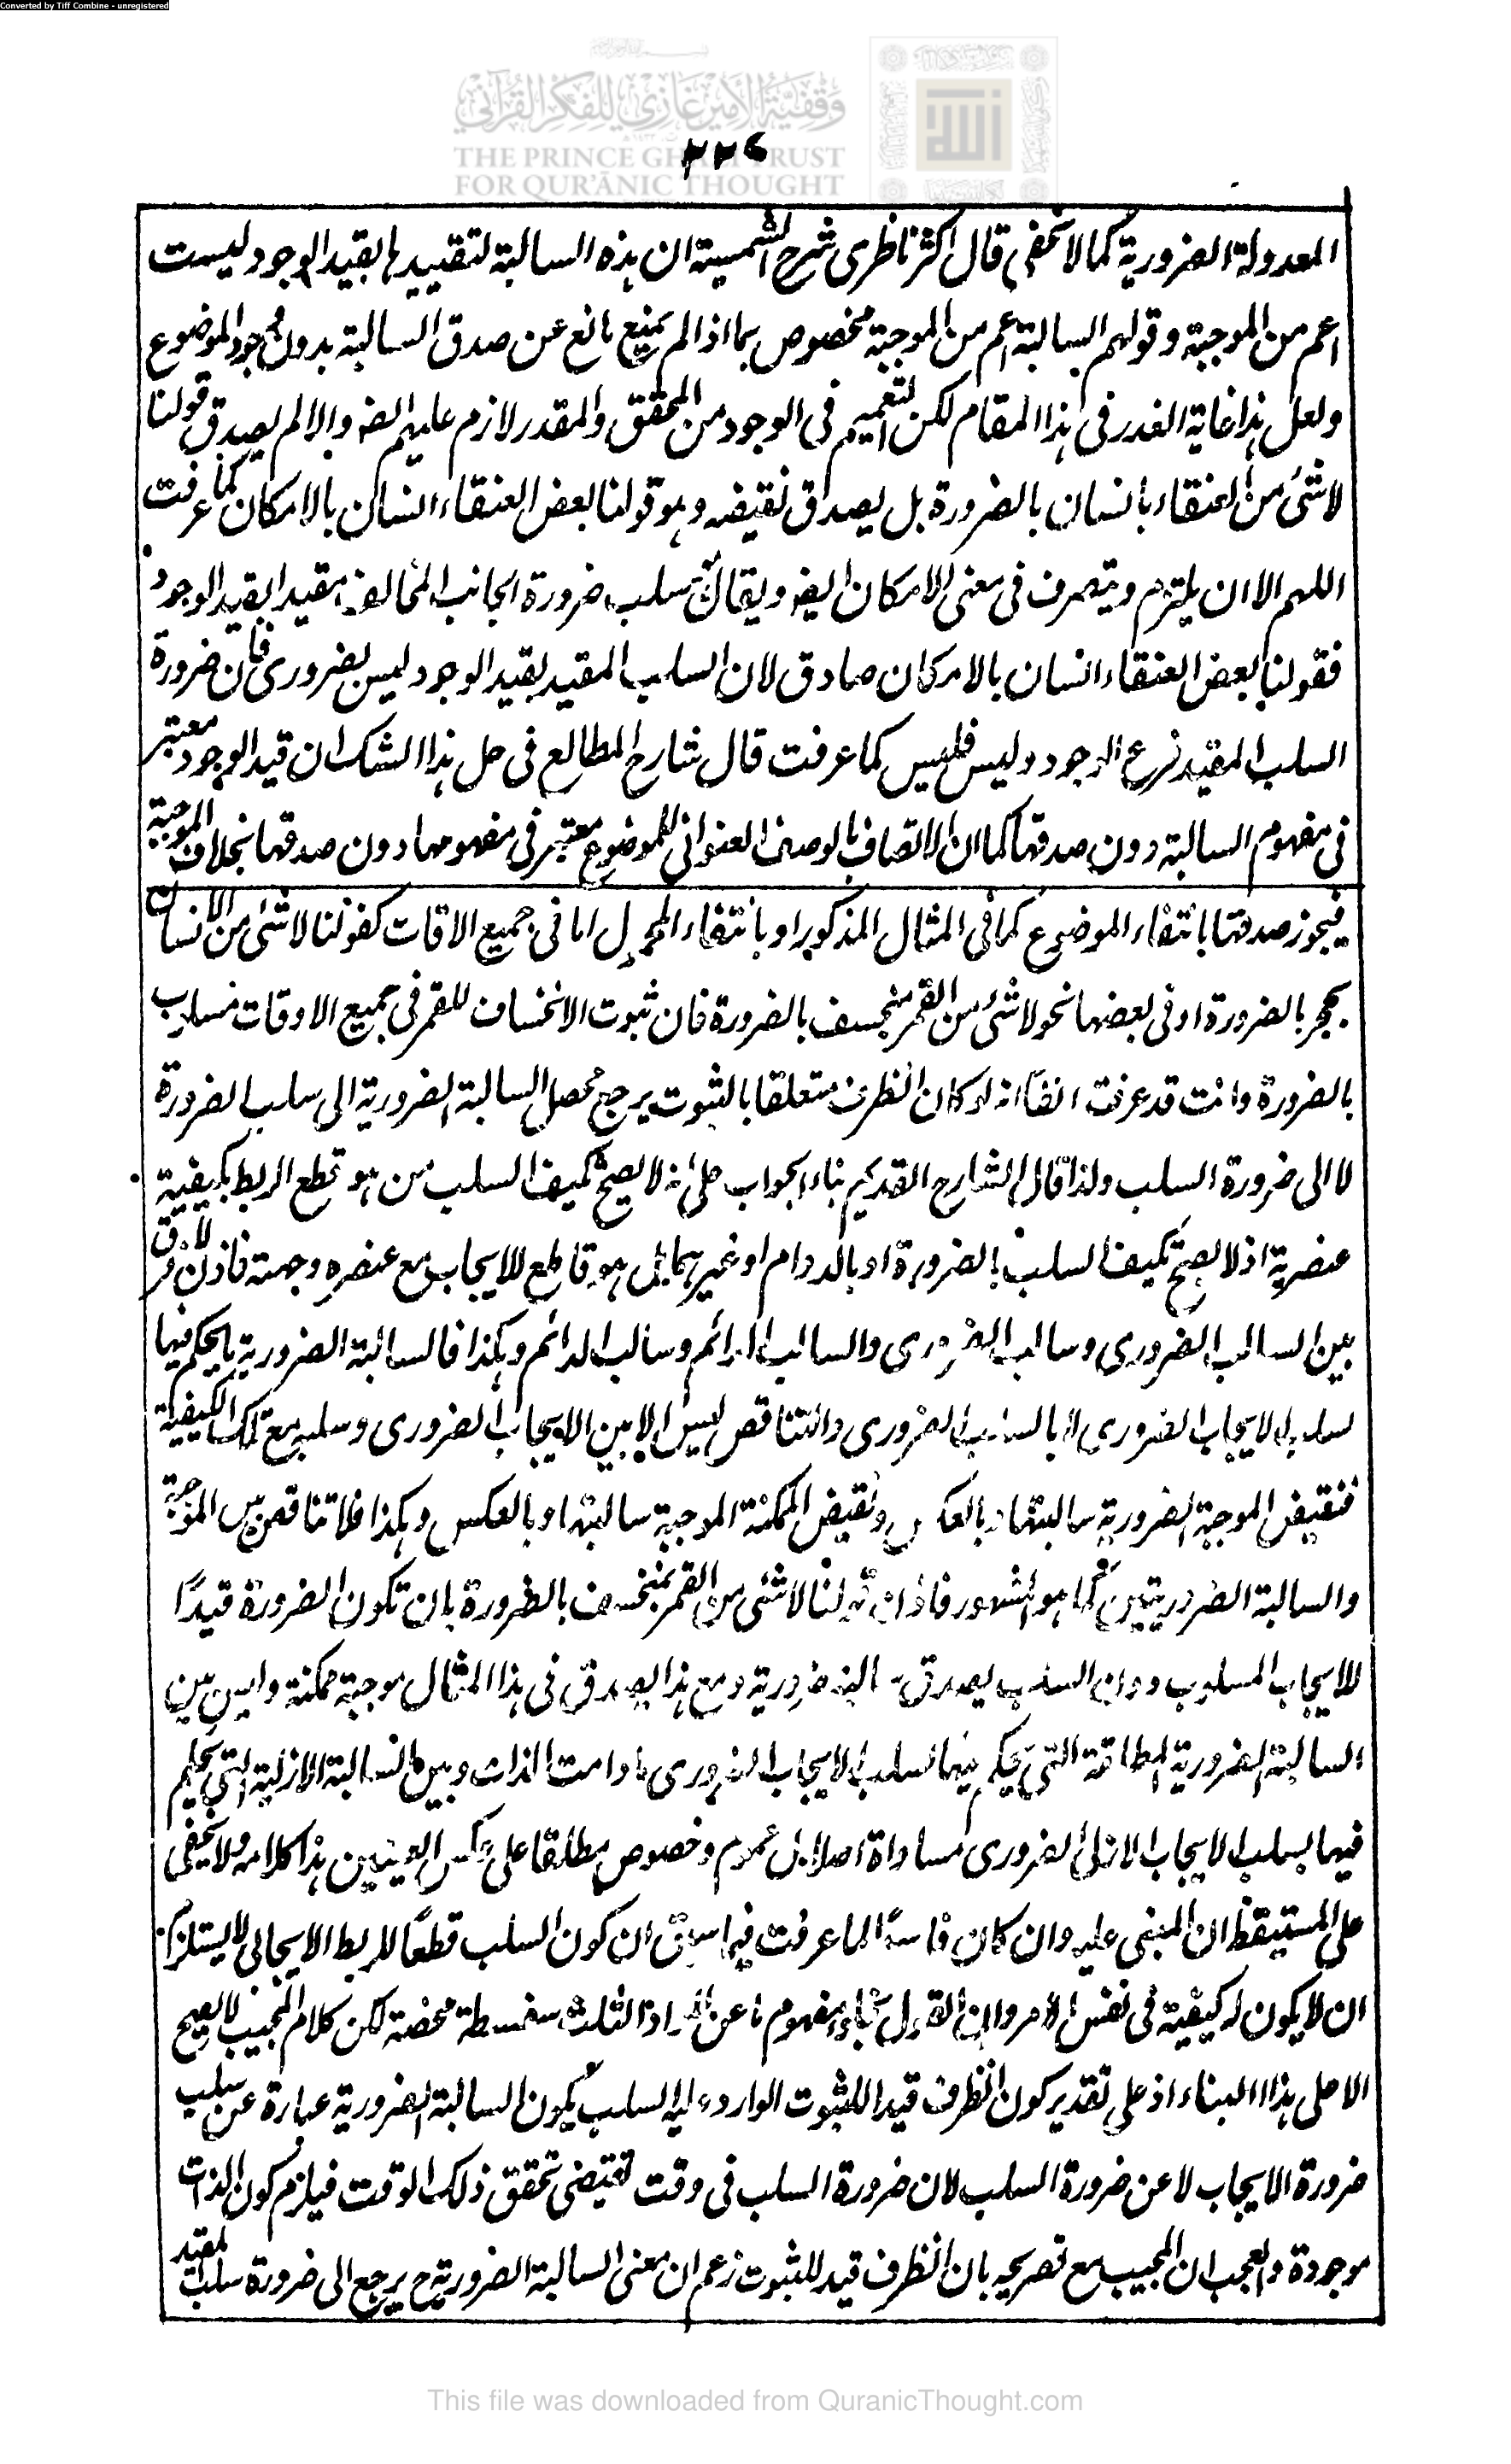 Converted by Tiff Combine - unregistered
وقفية الأمير غازي للفكر القرآني
THE PRINCE GHAZI TRUST
FOR QUR'ĀNIC THOUGHT
٢٢٤
المعدولة الضرورية كما لا يخفى قال اكثر ناظرى شرح الشمسية ان هذه السالبة لتقييدها بقيد الوجود ليست
اعم من الموجبة وقولهم السالبة اعم من الموجبة مخصوص بما اذا لم يمنع مانع عن صدق السالبة بدون وجود الموضوع
ولعل هذا غاية العذر فى هذا المقام لكن التعميم فى الوجود من المحقق والمقدر لازم عليهم ايضه والا لم يصدق قولنا
لا شئ من العنقاء بانسان بالضرورة بل يصدق نقيضه وهو قولنا بعض العنقاء انسان بالامكان كما عرفت
اللهم الا ان يلتزم ويتصرف فى معنى الامكان ايضه ويقال انه سلب ضرورة الجانب المخالف مقيدا بقيد الوجود
فقولنا بعض العنقاء انسان بالامكان صادق لان السلب المقيد بقيد الوجود ليس بضرورى فان ضرورة
السلب المقيد فرع الوجود وليس فليس كما عرفت قال شارح المطالع فى حل هذا الشك ان قيد الوجود معتبر
فى مفهوم السالبة دون صدقها كما ان الاتصاف بالوصف العنوانى للموضوع معتبر فى مفهومها دون صدقها بخلاف الموجبة
فيجوز صدقها بانتفاء الموضوع كما فى المثال المذكور او بانتفاء المحمول اما فى جميع الاقات كقولنا لا شئ من الانسان
بحجر بالضرورة او فى بعضها نحو لا شئ من القمر بمنخسف بالضرورة فان ثبوت الانخساف للقمر فى جميع الاوقات مسلوب
بالضرورة وانت قد عرفت انفا انه لو كان الظرف متعلقا بالثبوت يرجع محصل السالبة الضرورية الى سلب الضرورة
لا الى ضرورة السلب ولذا قال الشارح القديم بناء الجواب على انه لا يصح تكييف السلب من هو قطع الربط بكيفية
عنصرية اذ لا يصح تكييف السلب بالضرورة او بالدوام او غيرهما بل هو قاطع للايجاب مع عنصره وجهته فاذن لا فرق
بين السالب الضرورى وسالب الضرورى والسالب الدائم وسالب الدائم وهكذا فالسالبة الضرورية ما يحكم فيها
بسلب الايجاب الضرورى لا بالسلب الضرورى والتناقض ليس الا بين الايجاب الضرورى وسلبه مع تلك الكيفية
فنقيض الموجبة الضرورية سالبتها وبالعكس ونقيض الممكنة الموجبة سالبتها وبالعكس وهكذا فلا تناقض بين الموجبة
والسالبة الضروريتين كما هو المشهور فاذن قولنا لا شئ من القمر بمنخسف بالضرورة بان تكون الضرورة قيدًا
للايجاب المسلوب دون السلب يصدق سالبة ضرورية ومع هذا يصدق فى هذا المثال موجبة ممكنة وليس بين
السالبة الضرورية المطلقة التى يحكم فيها بسلب الايجاب الضرورى ما دامت الذات وبين السالبة الازلية التى يحكم
فيها بسلب الايجاب الازلى الضرورى مساواة اصلا بل عموم وخصوص مطلقا على عكس العينيين هذا كلامه ولا يخفى
على المستيقظ ان المبنى عليه وان كان فاسدًا لما عرفت فيما سبق ان كون السلب قطعًا للربط الايجابى لا يستلزم
ان لا يكون له كيفية فى نفس الامر وان القول بخلو مفهوم ما عن المواد الثلث سفسطة محضة لكن كلام المجيب لا يصح
الا على هذا البناء اذ على تقدير كون الظرف قيدا للثبوت الوارد عليه السلب يكون السالبة الضرورية عبارة عن سلب
ضرورة الايجاب لا عن ضرورة السلب لان ضرورة السلب فى وقت تقتضى تحقق ذلك الوقت فيلزم كون الذات
موجودة والعجب ان المجيب مع تصريحه بان الظرف قيد للثبوت زعم ان معنى السالبة الضرورية ح يرجع الى ضرورة سلب المقيد
This file was downloaded from QuranicThought.com